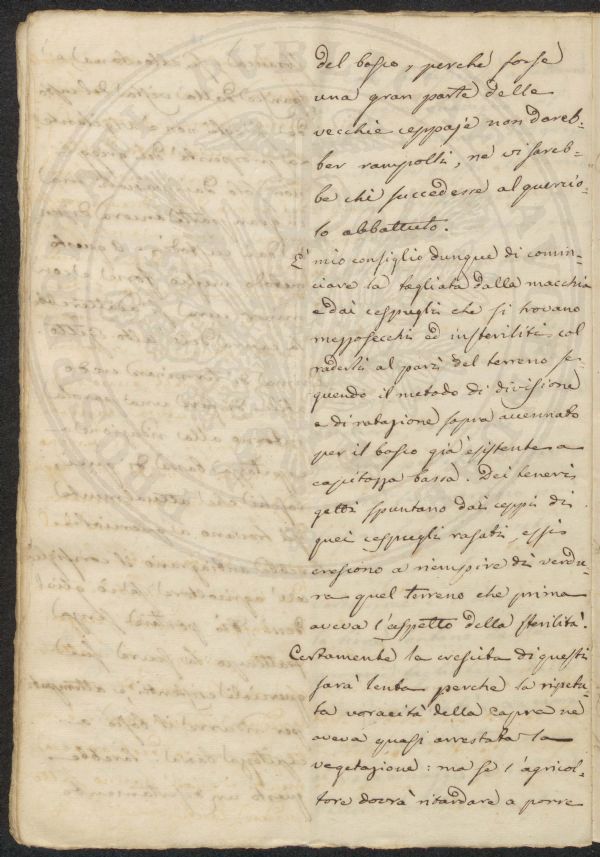 del bosco, perchè forse
una gran parte delle
vecchie ceppaje non dareb-
ber rampolli, nè vi sareb-
be chi succedesse al quercio-
lo abbattuto.
È mio consiglio dunque di comin-
ciare la tagliata dalla macchia
e dai cespugli che si trovano
mezzosecchi ed insteriliti col
raderli al pari del terreno se-
guendo il metodo di divisione
e di rotazione sopra accennato
per il bosco già esistente a
capitozza bassa. Dei teneri
getti spuntano dai ceppi di
quei cespugli rasati, essi
crescono a riempire di verdu-
ra quel terreno che prima
aveva l'aspetto della sterilità.
Certamente la crescita di questi
sarà lenta perchè la ripetu-
ta voracità della capra ne
aveva quasi arrestata la
vegetazione: ma se l'agricol-
tore dovrà ritardare a porre